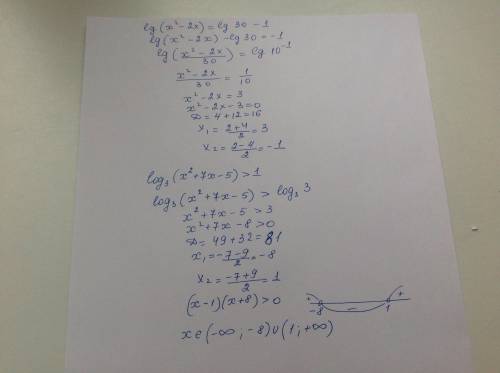 lg(x²-2x)=lg 30 - 1
lg(x²-2x)-lg 30=-1
lg(x²-2x/30) = lg 10⁻¹
x²-2x/30 = 1/10
x²-2x=3
x²-2x-3=0
D=4+12=16
x₁=2+4/2=3
x₂=2-4/2=-1
log₃(x²+7x-5)>1
log₃(x²+7x-5)>log₃3
x²+7x-5>3
x²+7x-8>0
D=49+32=81
x₁=-7-9/2=-8
x₂=-7+9/2=1
(x-1)(x+8)>0
+ - +
-8 1
x∈(-∞;-8)∪(1;+∞)